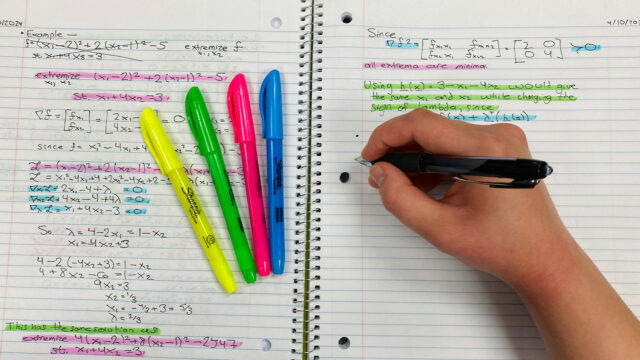 /2024
• Example —
f=(x₁-2)²+2(x₂-1)²-5 extremize f
x₁, x₂
s.t. x₁+4x₂=3
extremize (x₁-2)²+2(x₂-1)²-5
x₁, x₂
st. x₁+4x₂=3
∇f = [fx₁] = [2x₁-
[fx₂] [4x₂-
since f = x₁²-4x₁+
ℒ = (x₁-2)²+2(x₂-1)²
ℒ = x₁²-4x₁+4+2x₂²-4x₂+2-
∇x₁ℒ 2x₁-4+λ =0
∇x₂ℒ 4x₂-4+4λ =0
∇λℒ x₁+4x₂-3 =0
So λ=4-2x₁=1-x₂
x₁=-4x₂+3
4-2(-4x₂+3)=1-x₂
4+8x₂-6=1-x₂
9x₂=3
x₂=1/3
x₁=-4/3+3=5/3
λ=2/3
This has the same solution as
extremize 4(x₁-2)²+8(x₂-1)²-2547
st. x₁+4x₂=3
Sharpie
4/10/
Since
∇f² = [fx₁x₁ fx₁x₂] = [2 0] >0
[fx₂x₁ fx₂x₂] [0 4]
all extrema are minima
Using h(x)=3-x₁-4x₂ would give
the same x₁ and x₂ while changing the
sign of lambda, since
f(x) + λᵀ(h(x))